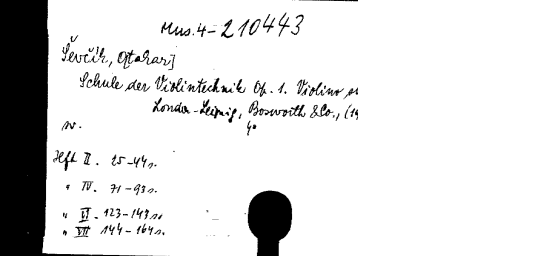 Mus. 4-210443
Ševčík, Otakar]
Schule der Violintechnik Op. 1. Violino
London-Leipzig, Bosworth & Co., (19
4°
Heft II. 25-44 s.
" IV. 71-93 s.
" VI. 123-143 s.
" VII 144-164 s.